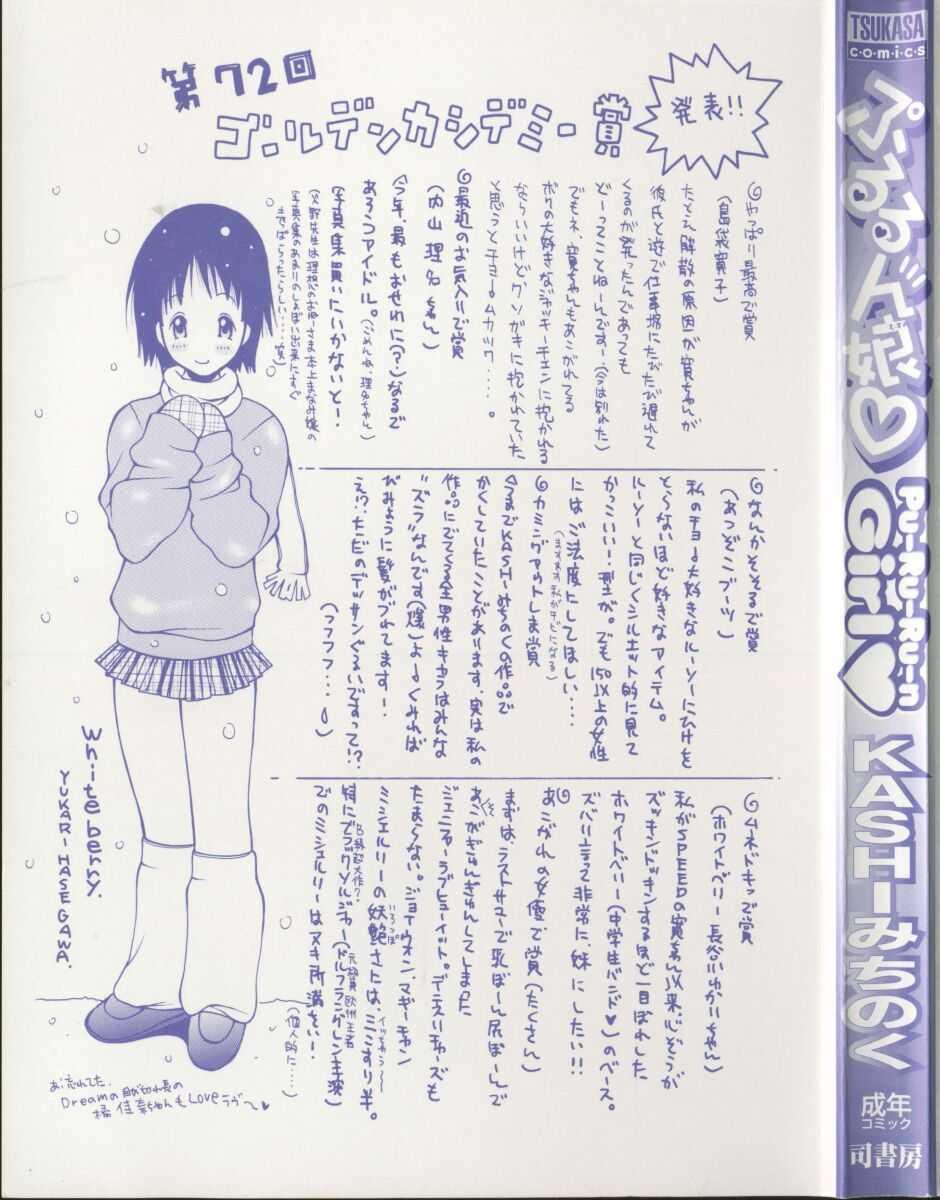 第72回
ゴールデンカシデミー賞
発表!!
やっぱり最高で賞
(島袋寛子)
たとえ解散の原因が寛ちゃんが
彼氏と遊んで仕事場にたびたび遅れて
くるのが発ったんであっても
どーってことねーんです…(今は別れた)
でもネ、寛ちゃんもあこがれてる
ボクの大好きなジャッキーチェンに抱かれる
ならいいけど、クソガキに抱かれていた
と思うとチョームカツク……。
最近のお気入りで賞
(内山理名ちゃん)
今年、最もおせわに(?)なるで
あろうアイドル。(ごめんね、理名ちゃん)
写真集買いにいかないと!
なんかそそるで賞
(あつぞこブーツ)
私のチョー大好きなルーソーにひけを
とらないほど好きなアイテム。
ルーソーと同じくシルエット的に見て
かっこいい!型が。でも150以上の女性
にはご法度にしてほしい……
(ますます私がチビになる)
カミングアウトしま賞
今までKASHIみちのくの作品で
かくしていたことがあります。実は私の
作品にでてくる全男性キャラはみんな
"ズラ"なんです(爆)よーくみれば
びみょうに髪がズレてます!
え!?ただのデッサンぐるいですって!?
(フフフフ…)
ムネドキッで賞
(ホワイトベリー長谷川ゆかりちゃん)
私がSPEEDの寛ちゃん以来、心ぞうが
ズッキンドッキンするほど一目ぼれした
ホワイトベリー(中学生バンド♥)のベース。
ズバリ言って非常に、妹にしたい!!
あこがれの女優で賞(たくさん)
まずは、ラストサマーで乳ぼーん尻ぼーんで
あごがぎゅんぎゅんしてしまった
ジェニファー・ラブ・ヒューイット。デニスリチャーズも
たまらない。ジョイウォン、マギーチャン
ミシェルリーの妖艶さとは、ミミずり半。
特にブラックソルジャー(ドルフラングレン主演)
B級超大作?
元格闘欧州王者
でのミシェルリーはヌキ所満さい!
(個人的に……)
Whiteberry.
YUKARI HASEGAWA.
あ、忘れてた、
Dreamの
橘佳奈ちゃんもLoveラヴ〜♥
TSUKASA
comics
ぷるるん娘♡
PU-RU-RU-n
Girl♡
KASHIみちのく
成年
コミック
司書房